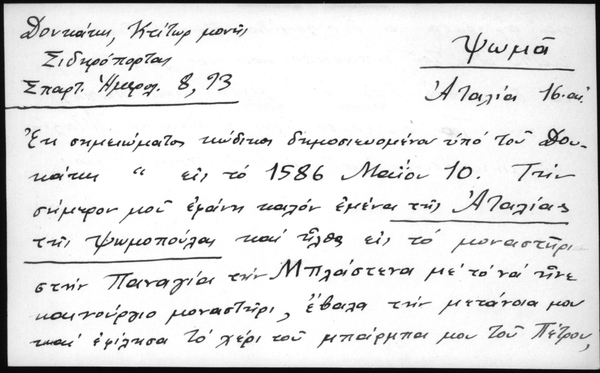 Δουκάκη, Κτίτωρ μονῆς
Σιδηρόπορτας
Σπαρτ. Ἡμερολ. 8, 93
Ψωμᾶ
Ἀταλία 16 αἰ.
Ἐκ σημειώματος κώδικος δημοσιευομένου ὑπό τοῦ Δου-
κάκη " εἰς τό 1586 Μαΐου 10. Τήν
σήμερον μοῦ ἐφάνη καλόν ἐμένα τῆς Ἀταλίας
τῆς Ψωμοπούλας καί ἦλθα εἰς τό μοναστήρι
στήν Παναγία τήν Μπλάστενα μέ τό νά ἦνε
καινούργιο μοναστήρι, ἔβαλα τήν μετάνοια μου
καί ἐφίλησα τό χέρι τοῦ μπάρμπα μου τοῦ Πέτρου,